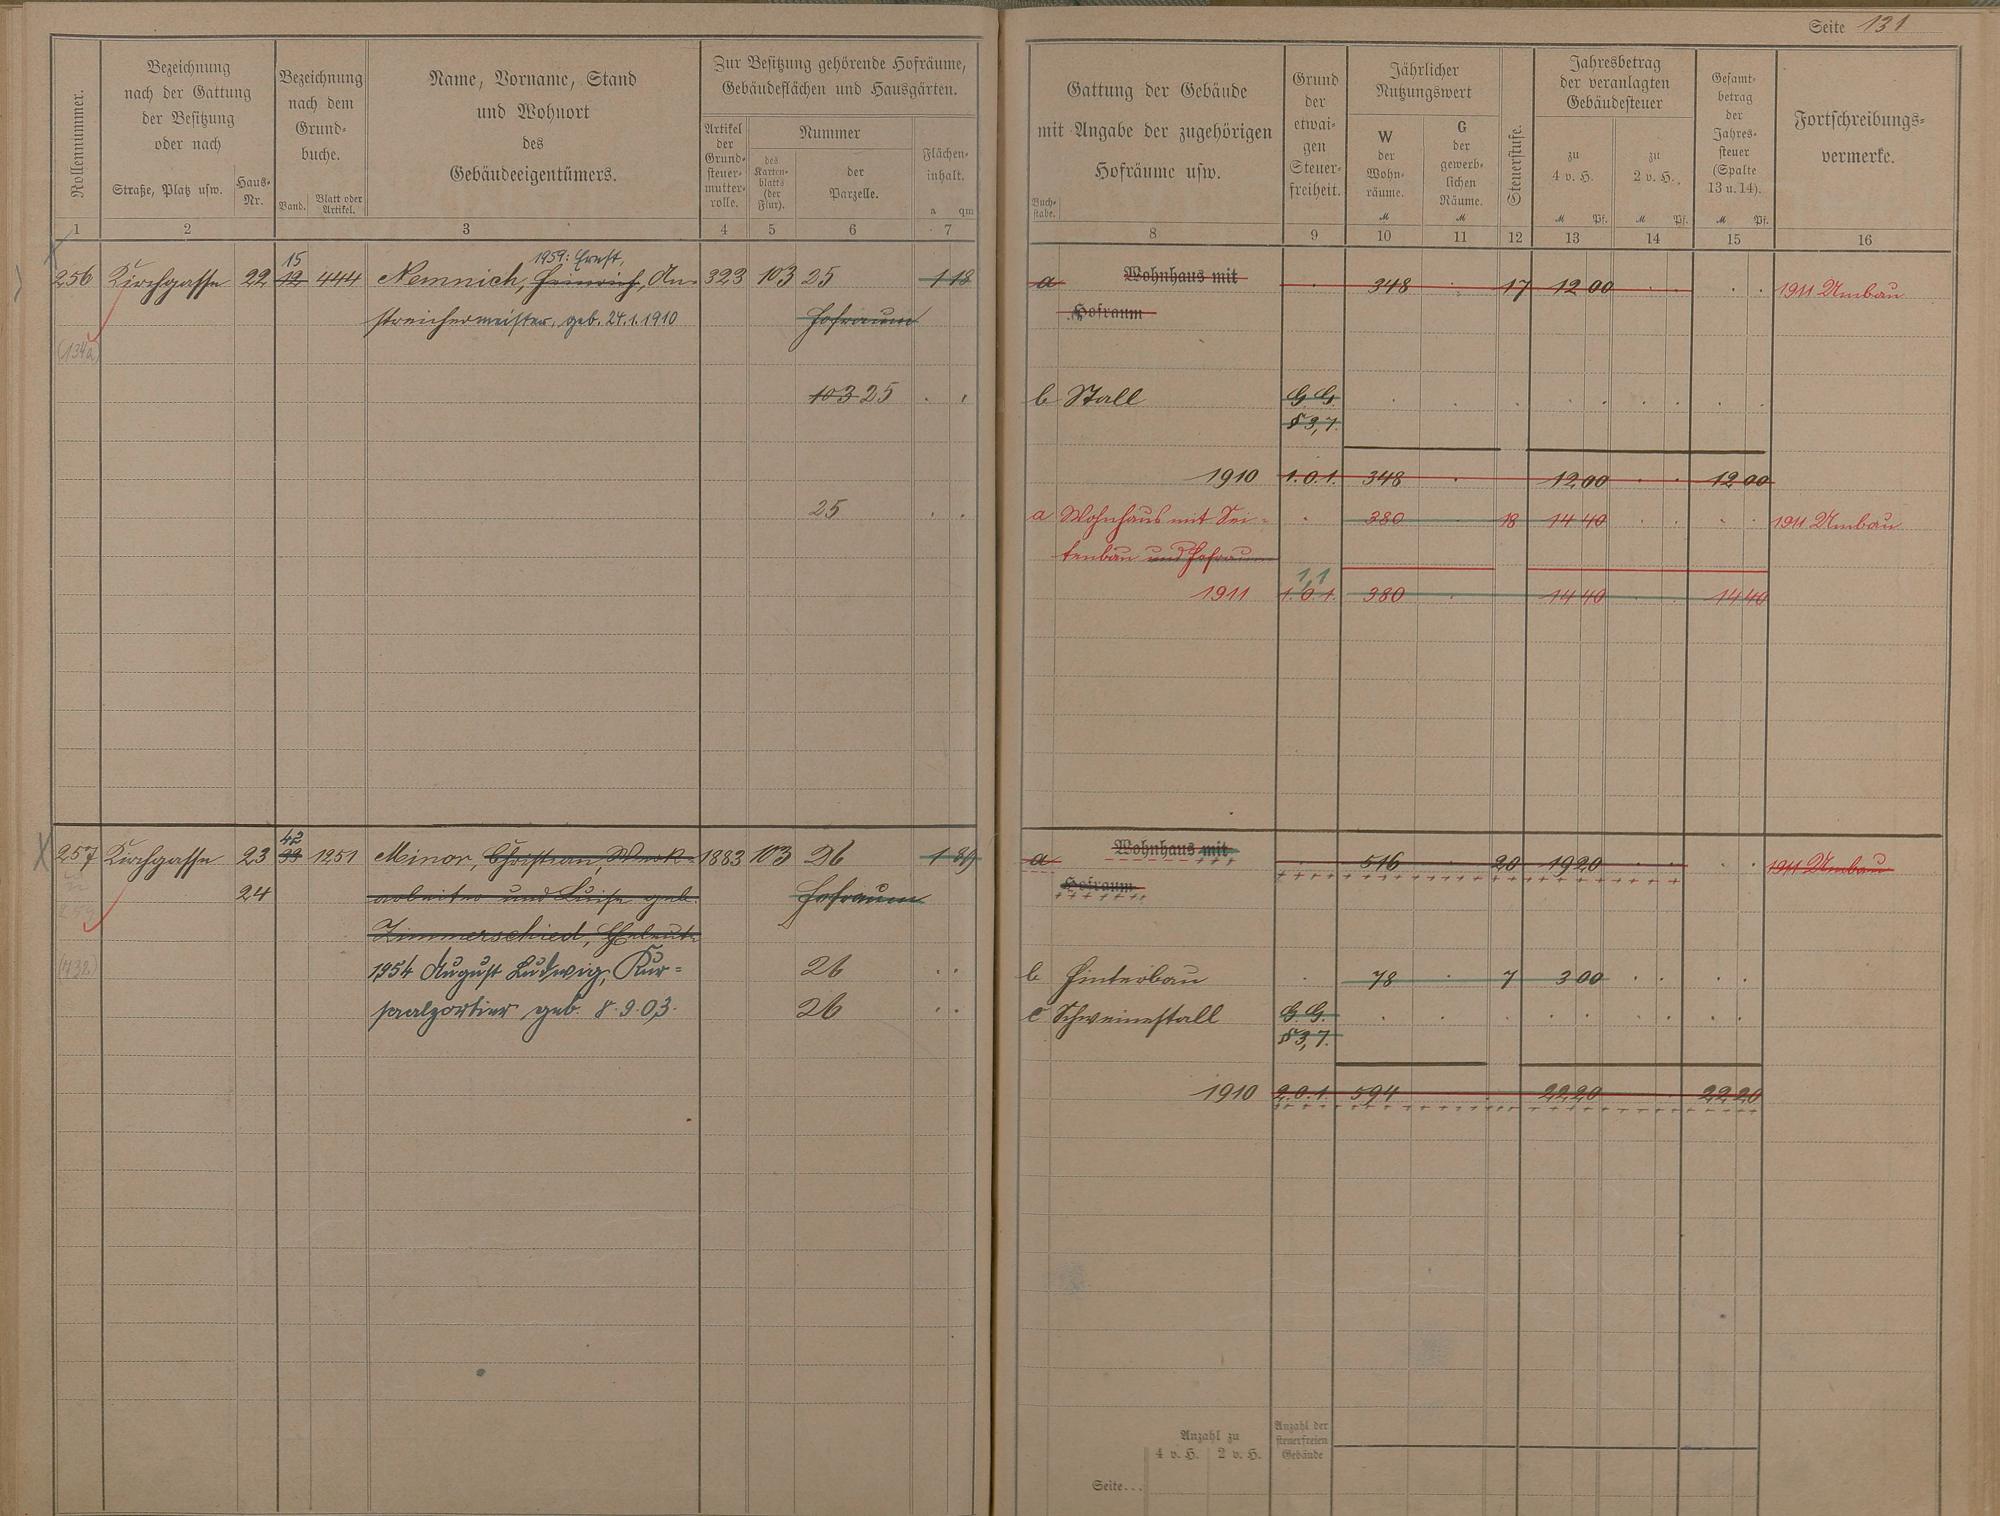 Seite 131
Rollennummer.
Bezeichnung
nach der Gattung
der Besitzung
oder nach
Straße, Platz usw.
Haus-
Nr.
Bezeichnung
nach dem
Grund-
buche.
Band.
Blatt oder
Artikel.
Name, Vorname, Stand
und Wohnort
des
Gebäudeeigentümers.
Zur Besitzung gehörende Hofräume,
Gebäudeflächen und Hausgärten.
Artikel
der
Grund-
steuer-
mutter-
rolle.
Nummer
des
Karten-
blatts
(der
Flur).
der
Parzelle.
Flächen-
inhalt.
a qm
1 2 3 4 5 6 7
Gattung der Gebäude
mit Angabe der zugehörigen
Hofräume usw.
Buch-
stabe.
Grund
der
etwai-
gen
Steuer-
freiheit.
Jährlicher
Nutzungswert
W
der
Wohn-
räume.
M
G
der
gewerb-
lichen
Räume.
M
Steuerstufe.
Jahresbetrag
der veranlagten
Gebäudesteuer
zu
4 v. H.
M Pf.
zu
2 v. H.
M Pf.
Gesamt-
betrag
der
Jahres-
steuer
(Spalte
13 u. 14).
M Pf.
Fortschreibungs-
vermerke.
8 9 10 11 12 13 14 15 16
15 1959: Ernst,
256 Kirchgasse 22 12 444 Nemnich, Heinrich, An- 323 103 25 1 18
streichermeister, geb. 24.1.1910 Hofraum
(134a)
103 25
25
a Wohnhaus mit 348 17 12 00 1911 Umbau
Hofraum
b Stall G. G.
§ 3,7.
1910 1.0.1. 348 12 00 12 00
a Wohnhaus mit Sei- 380 18 14 40 1911 Umbau
tenbau und Hofraum
1,1
1911 1.0.1. 380 14 40 14 40
42
257 Kirchgasse 23 33 1251 Minor, Christian, Werk- 1883 103 26 1 89
24 arbeiter und Luise geb. Hofraum
Zimmerschied, Eheleute
1954 August Ludwig, Kur- 26
saalportier geb. 8.9.03. 26
a Wohnhaus mit 516 20 19 20 1911 Umbau
Hofraum
b Hinterbau 78 7 3 00
c Schweinestall G. G.
§ 3,7.
1910 2.0.1. 594 22 20 22 20
Anzahl zu
4 v. H. 2 v. H.
Anzahl der
steuerfreien
Gebäude
Seite...